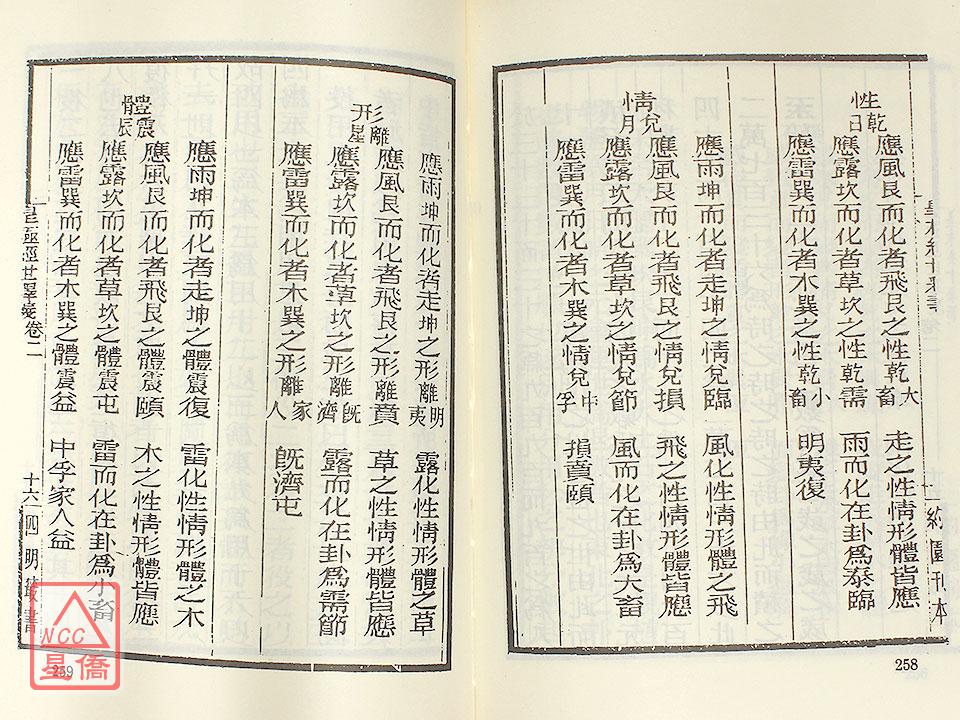 性乾日
應風艮而化者飛艮之性乾大畜 走之性情形體皆應
應露坎而化者草坎之性乾需 雨而化在卦為泰臨
應雷巽而化者木巽之性乾小畜 明夷復
情兌月
應雨坤而化者走坤之情兌臨 風化性情形體之飛
應風艮而化者飛艮之情兌損 飛之性情形體皆應
應露坎而化者草坎之情兌節 風而化在卦為大畜
應雷巽而化者木巽之情兌中孚 損賁頤
約園刊本
258
形離星
應雨坤而化者走坤之形離明夷 露化性情形體之草
應風艮而化者飛艮之形離賁 草之性情形體皆應
應露坎而化者草坎之形離既濟 露而化在卦為需節
應雷巽而化者木巽之形離家人 既濟屯
體震辰
應雨坤而化者走坤之體震復 雷化性情形體之木
應風艮而化者飛艮之體震頤 木之性情形體皆應
應露坎而化者草坎之體震屯 雷而化在卦爲小畜
應雷巽而化者木巽之體震益 中孚家人益
皇極經世釋 卷二
十六 四明叢書
259
NCC
星僑